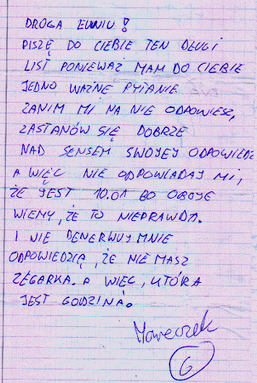 DROGA EWNIU!
PISZĘ DO CIEBIE TEN DŁUGI
LIST PONIEWAŻ MAM DO CIEBIE
JEDNO WAŻNE PYTANIE
ZANIM MI NA NIE ODPOWIESZ,
ZASTANÓW SIĘ DOBRZE
NAD SENSEM SWOJEJ ODPOWIEDZI
A WIĘC NIE ODPOWIADAJ MI,
ŻE JEST 10.01 BO OBOJE
WIEMY, ŻE TO NIEPRAWDA.
I NIE DENERWUJ MNIE
ODPOWIEDZIĄ, ŻE NIE MASZ
ZEGARKA. A WIĘC, KTÓRA
JEST GODZINA?
6